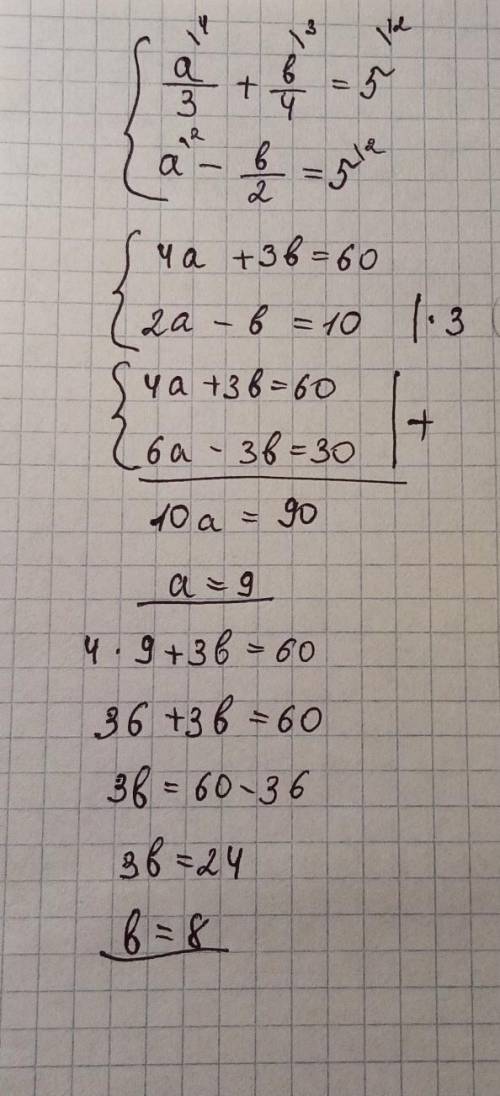 a/3 \4 + b/4 \3 = 5 \12
a \2 - b/2 = 5 \2
4a + 3b = 60
2a - b = 10 | · 3
4a + 3b = 60
6a - 3b = 30 | +
10a = 90
a = 9
4 · 9 + 3b = 60
36 + 3b = 60
3b = 60 - 36
3b = 24
b = 8